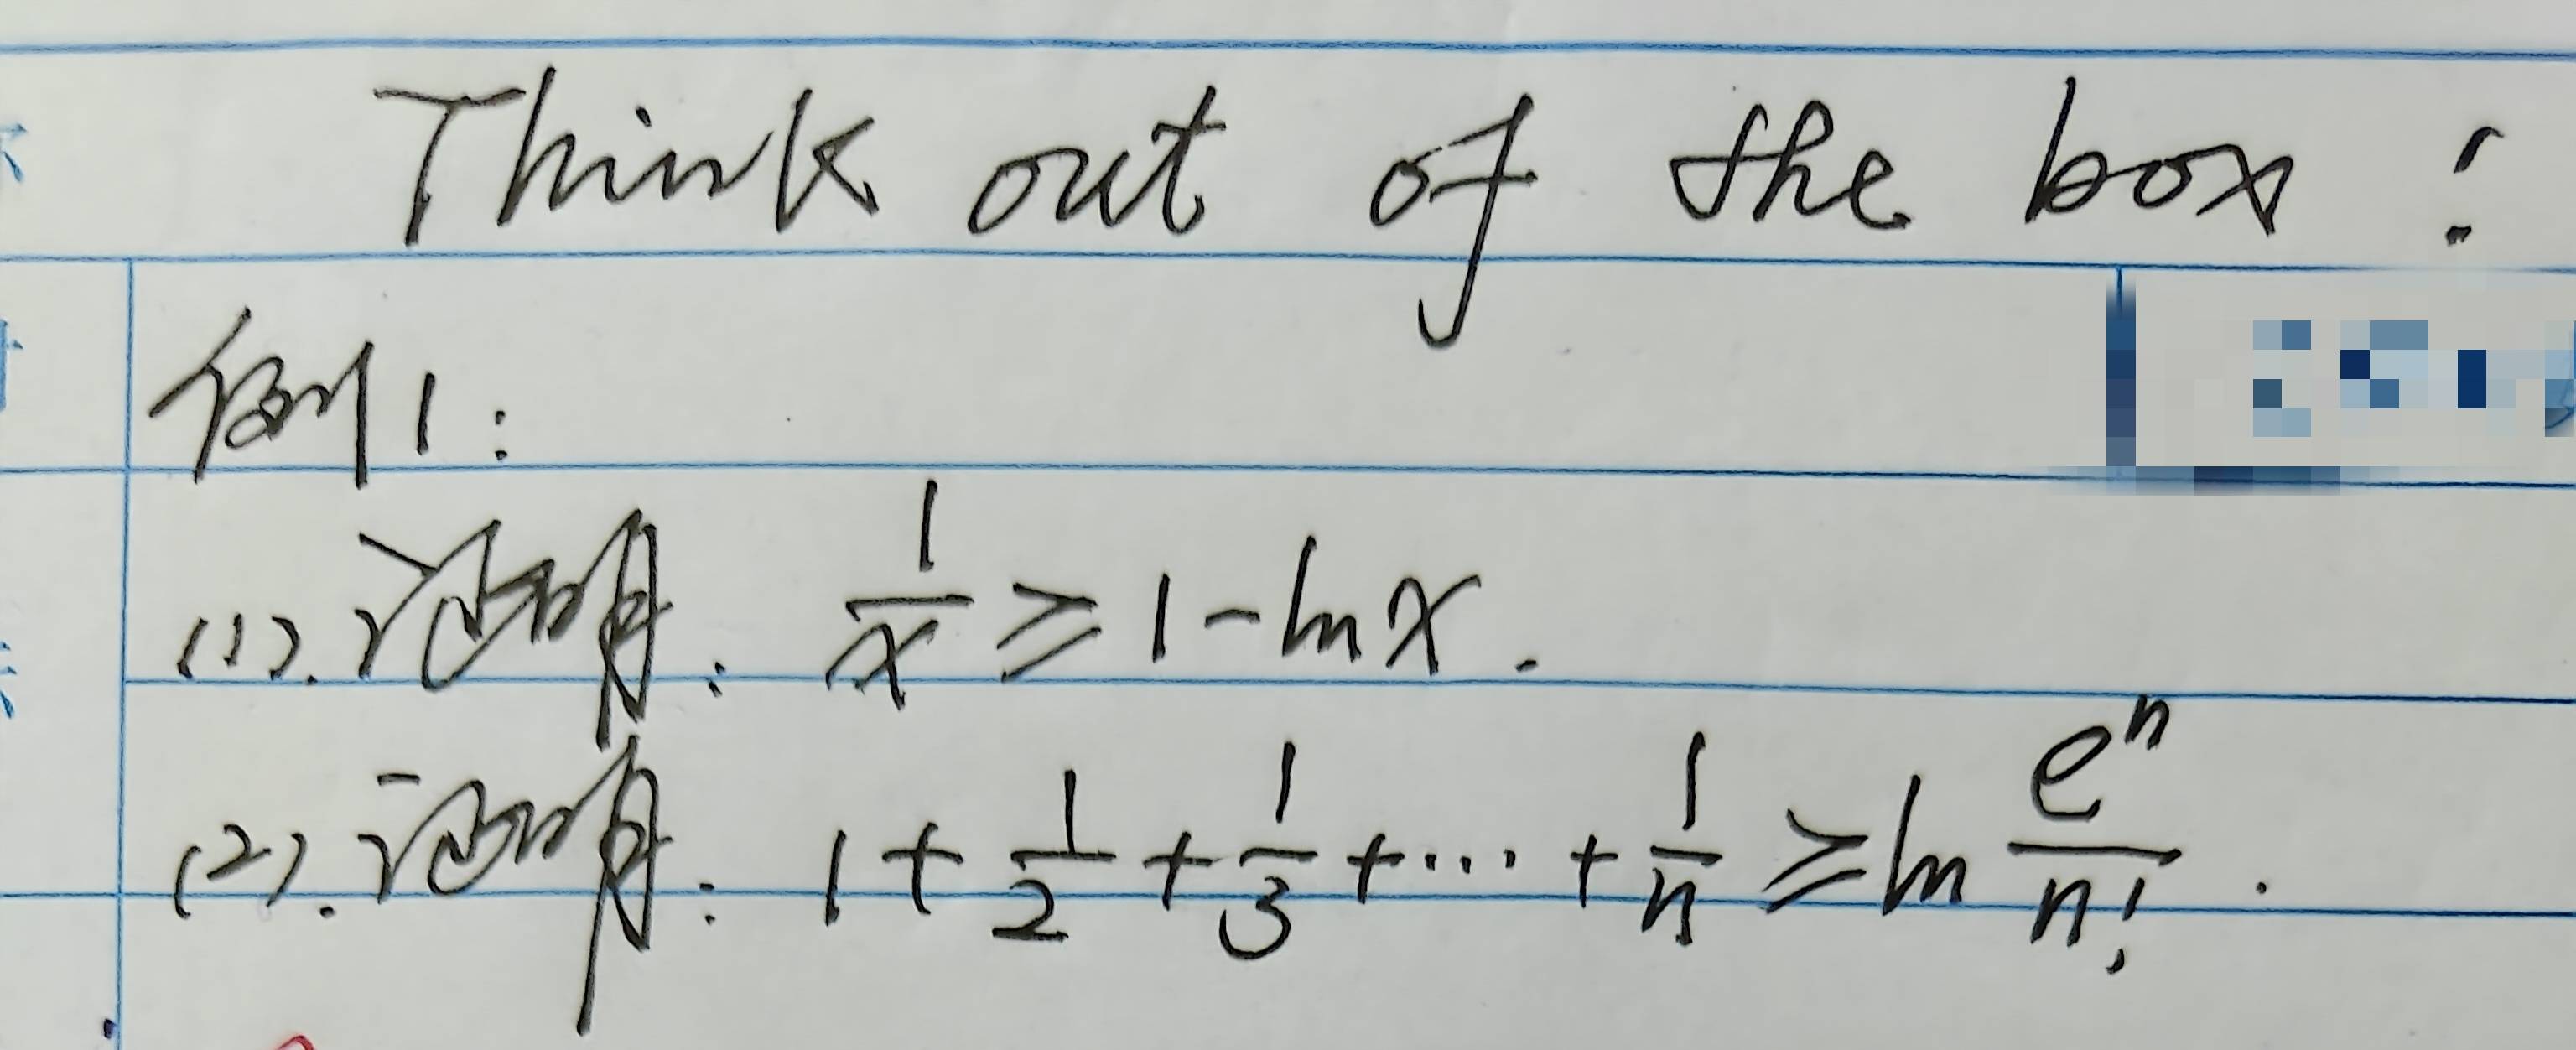 Think out of the box!
例1:
(1). 证明: 1/x ≥ 1 - ln x.
(2). 证明: 1 + 1/2 + 1/3 + ... + 1/n ≥ ln e^n/n!.